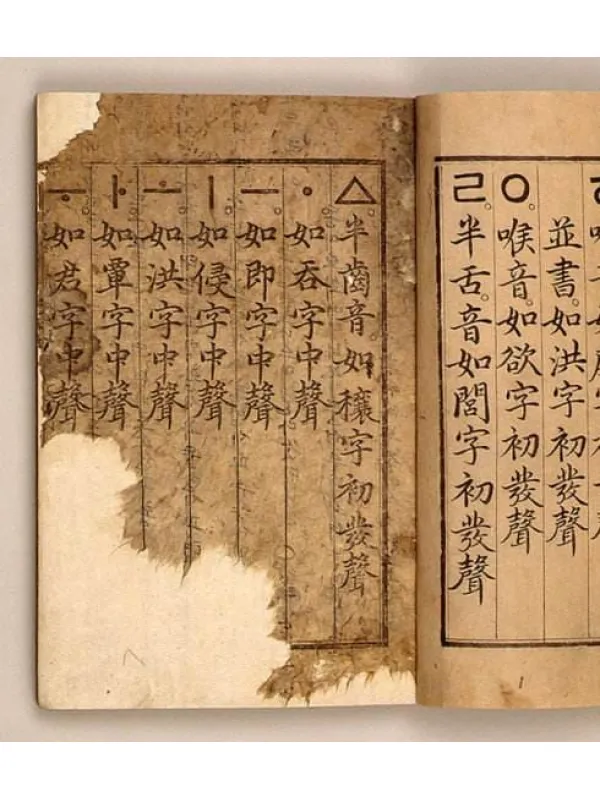 並書。如洪字初發聲
ㅇ。喉音。如欲字初發聲
ㄹ。半舌。音如閭字初發聲
ㅿ。半齒。音如穰字初發聲
ㆍ。如呑字中聲。
ㅡ。如即字中聲
ㅣ。如侵字中聲
ㅗ。如洪字中聲
ㅏ。如覃字中聲
ㅜ。如君字中聲